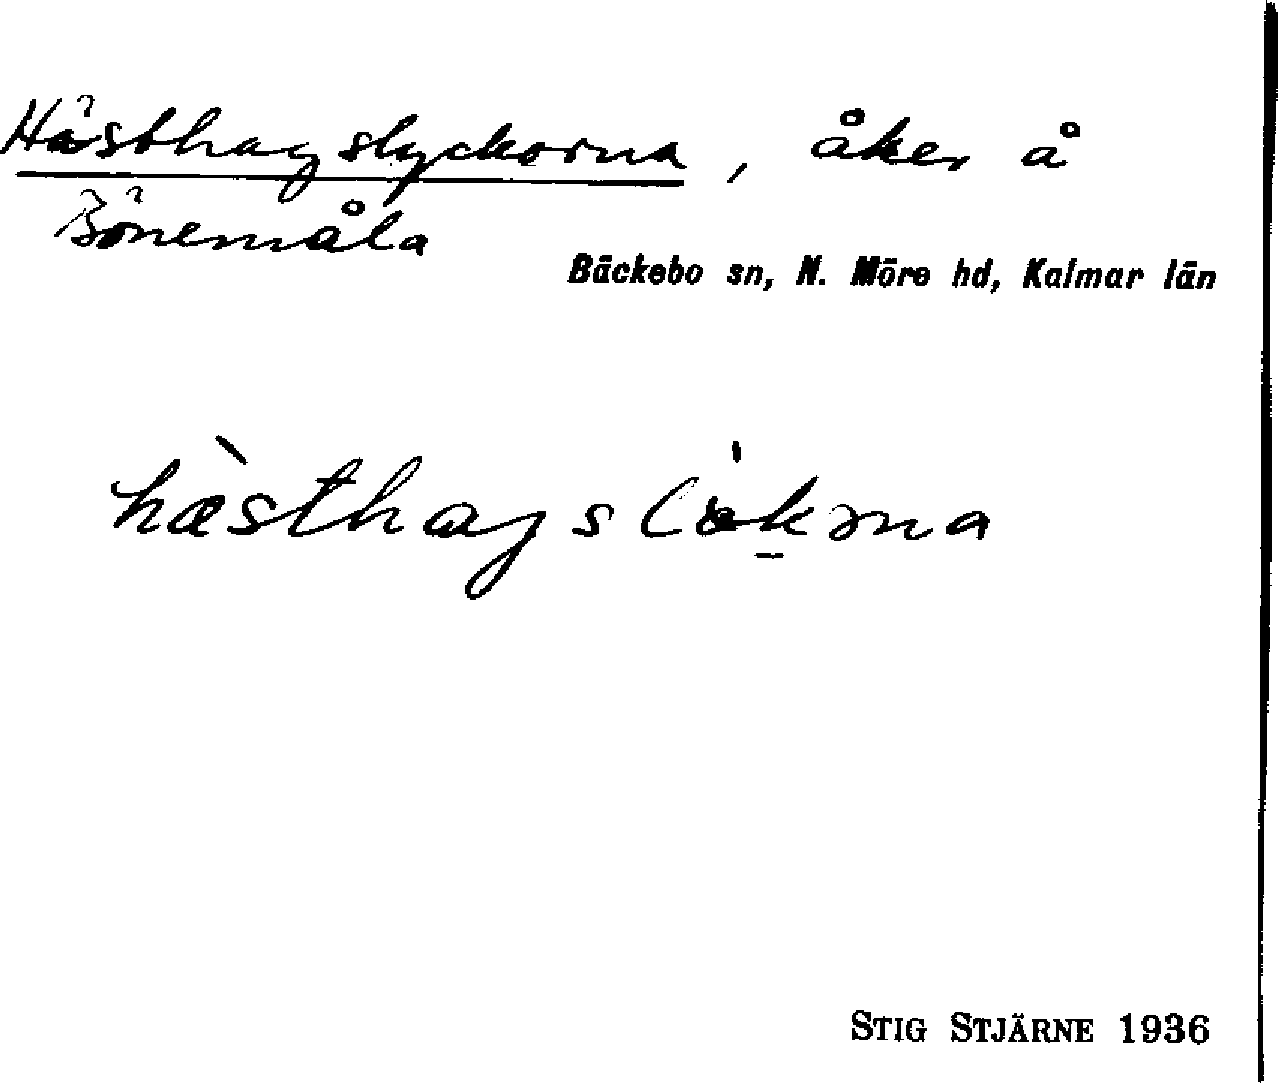 Hästhagslyckorna, åker å
Bönemåla
Bäckebo sn, N. Möre hd, Kalmar län
STIG STJÄRNE 1936